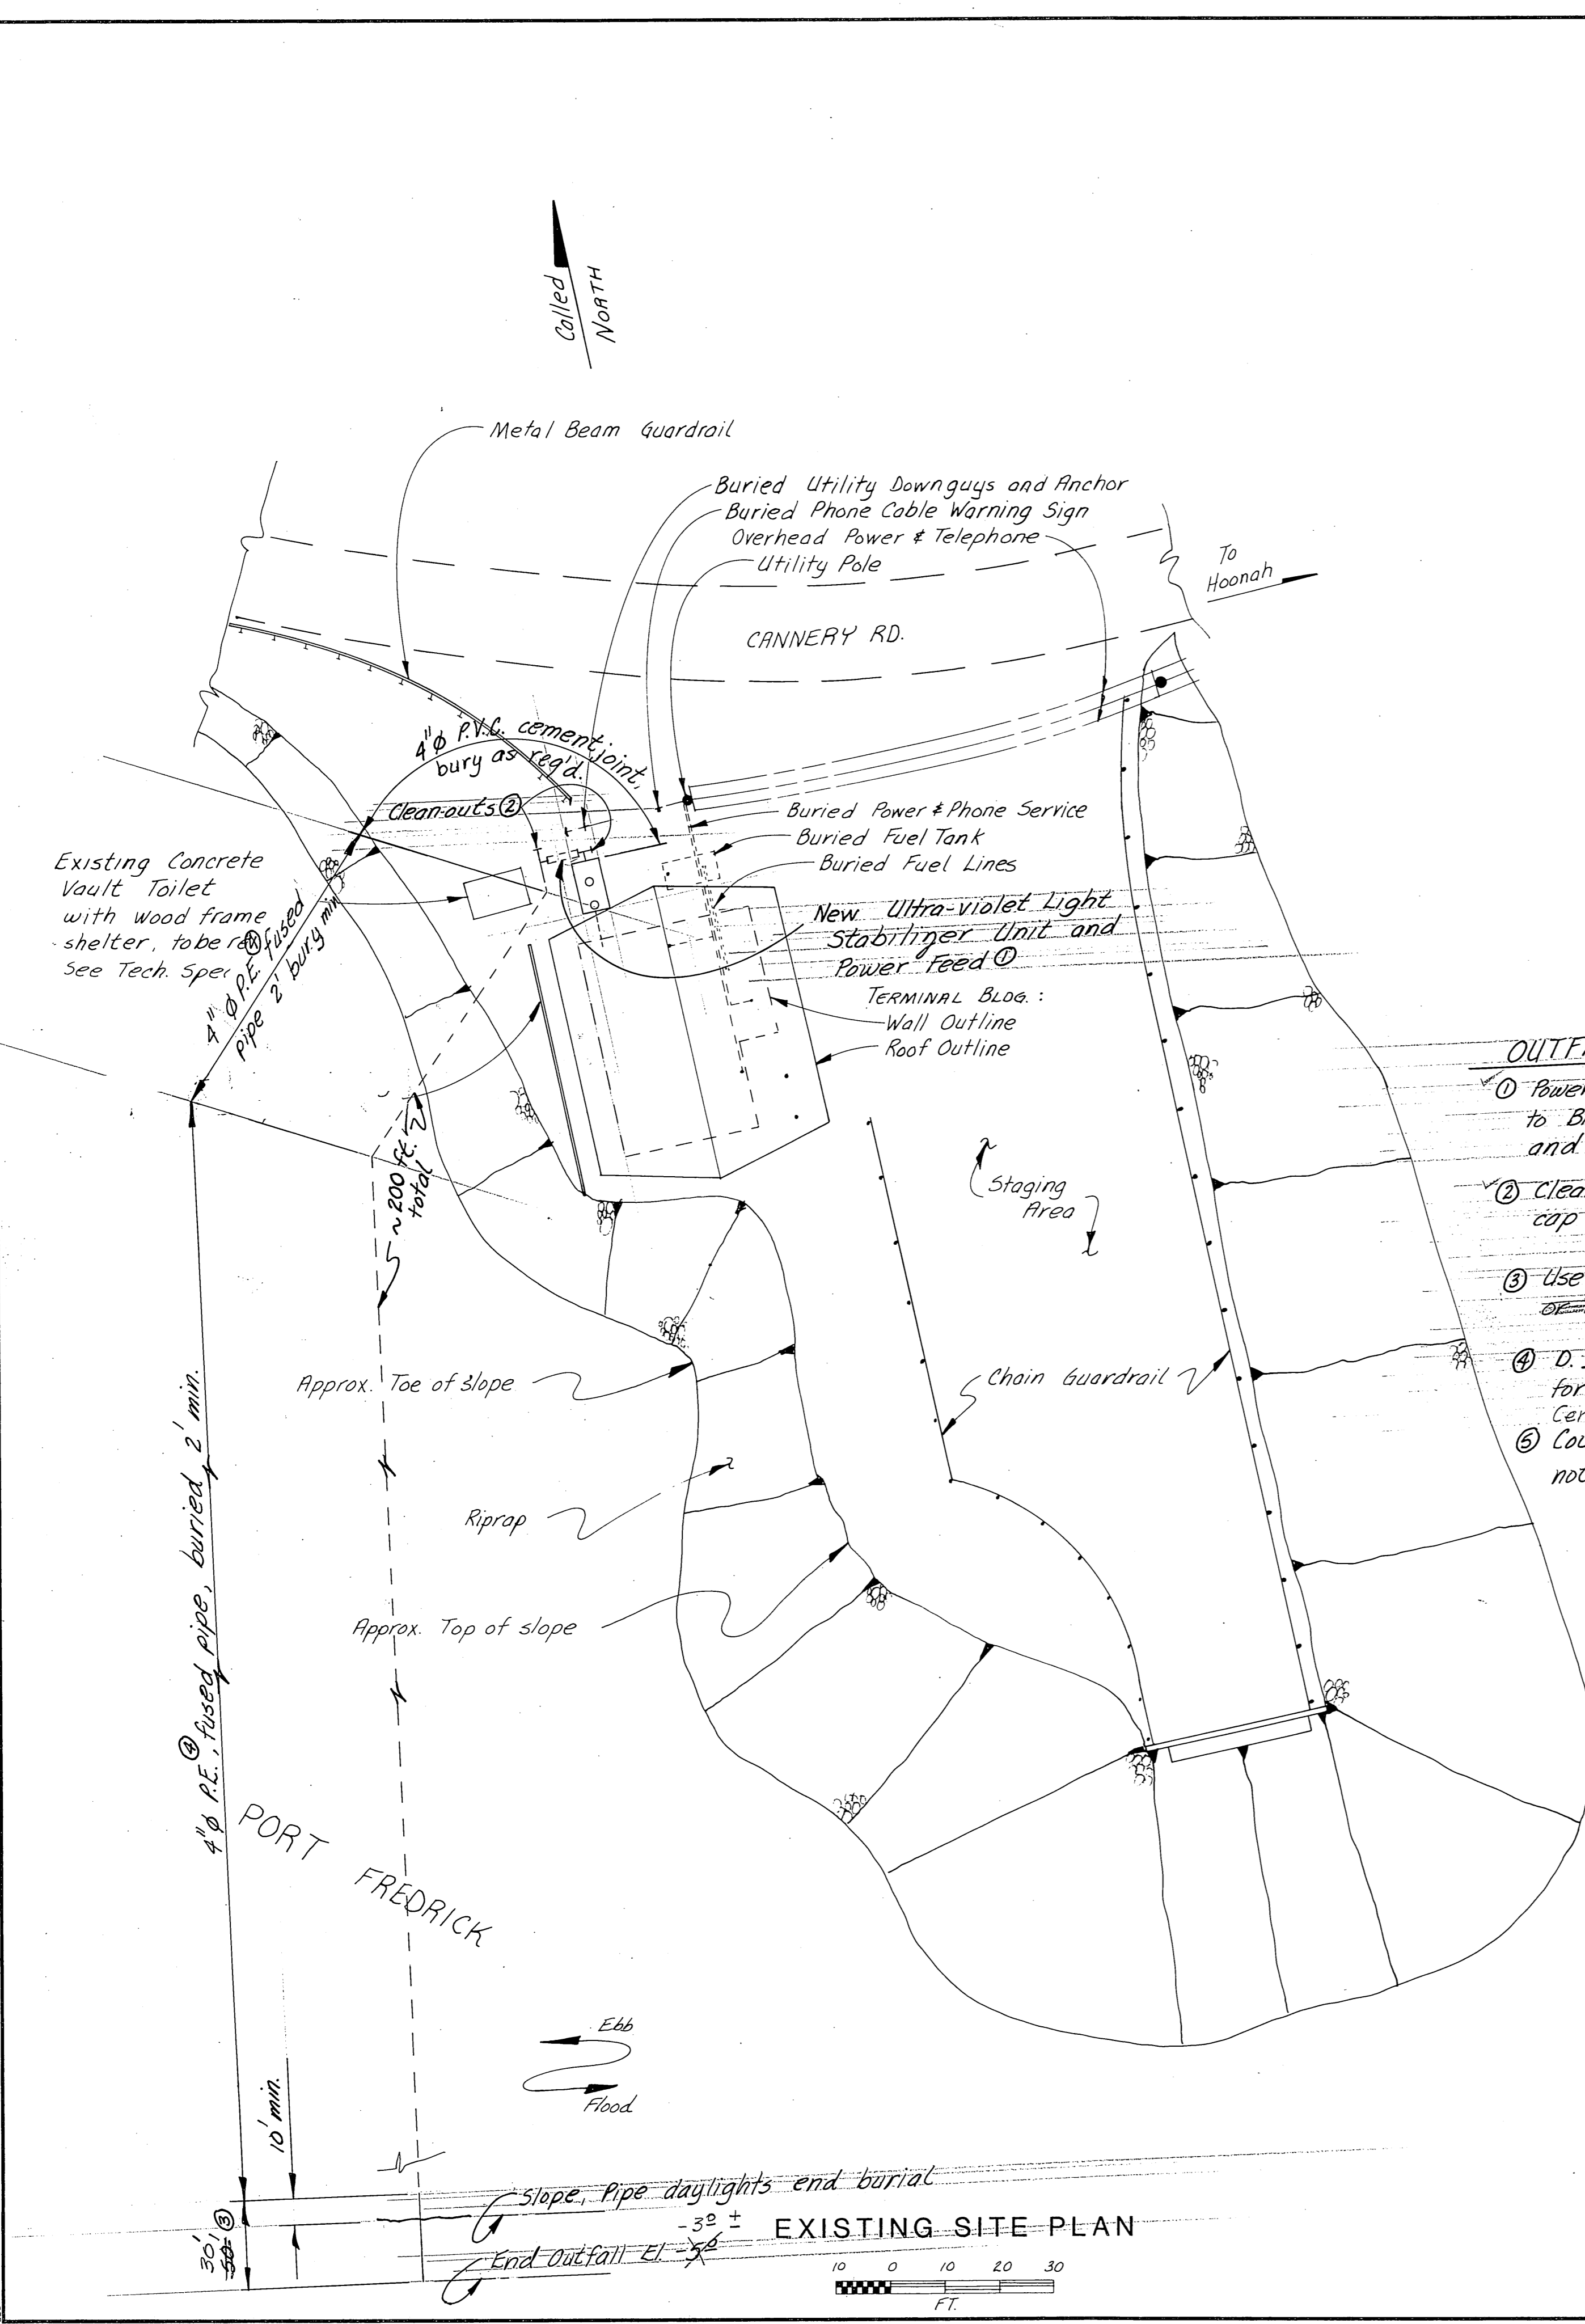 Called
NORTH
Metal Beam Guardrail
Buried Utility Downguys and Anchor
Buried Phone Cable Warning Sign
Overhead Power & Telephone
Utility Pole
To
Hoonah
CANNERY RD.
4"ø P.V.C. cement joint.
bury as req'd.
Cleanouts ②
Buried Power & Phone Service
Buried Fuel Tank
Buried Fuel Lines
Existing Concrete
Vault Toilet
with wood frame
shelter, to be
See Tech. Spec
4"ø P.E. ④ fused
pipe 2' bury min
New Ultra-violet Light
Stabilizer Unit and
Power Feed ①
TERMINAL BLDG. :
Wall Outline
Roof Outline
OUTF
① Power
to B
and
② Clea
cap
③ Use
④ D.
for
Cer
⑤ Cou
not
~ 200 ft.
total
Staging
Area
Approx. Toe of slope
Chain Guardrail
Riprap
Approx. Top of slope
4"ø P.E. ④, fused pipe, buried 2' min.
PORT FREDRICK
Ebb
Flood
10' min.
30' ③
Slope, Pipe daylights end burial
-32 ±
End Outfall El
EXISTING SITE PLAN
10 0 10 20 30
FT.